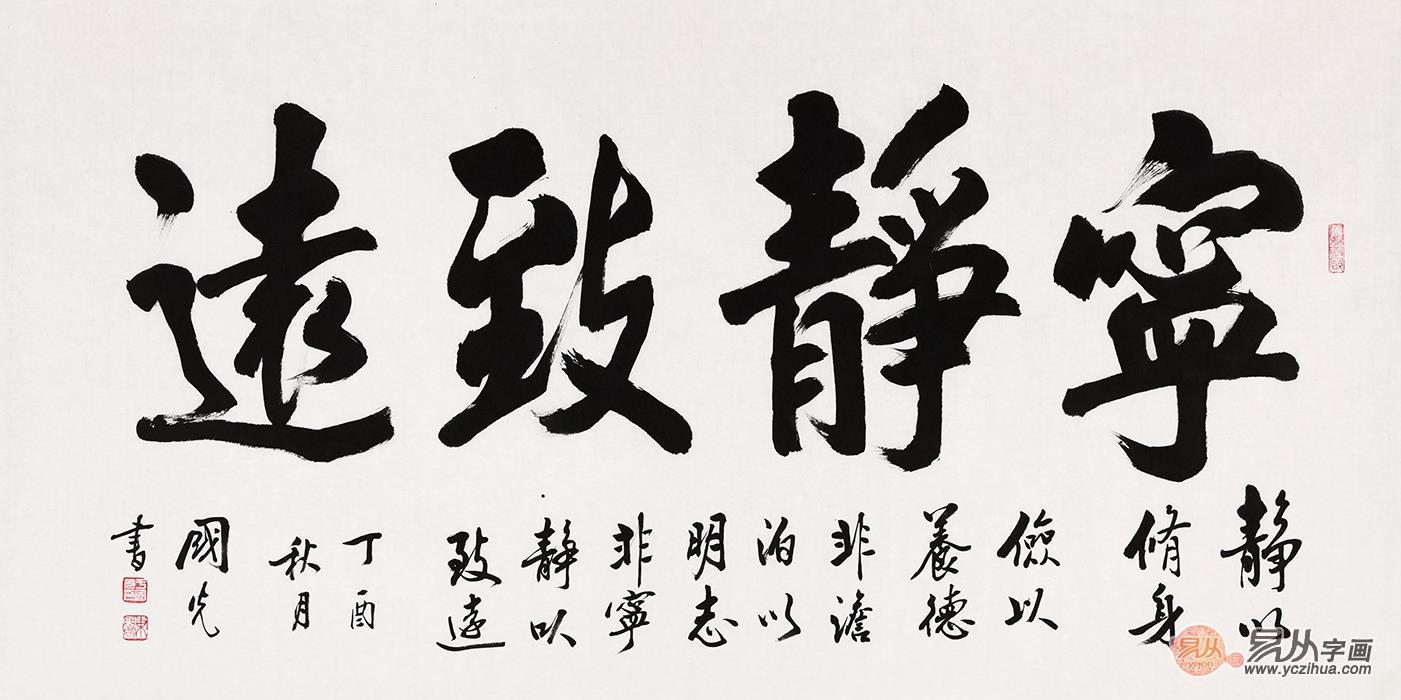 寧靜致遠
靜以
脩身
儉以
養德
非澹
泊以
明志
非寧
靜以
致遠
丁酉
秋月
國光
書
易从字画
www.yczihua.com
易从
yigon